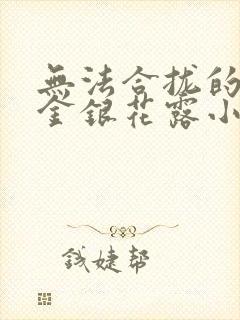 無法合拢的
金銀花露小
钱婕帮